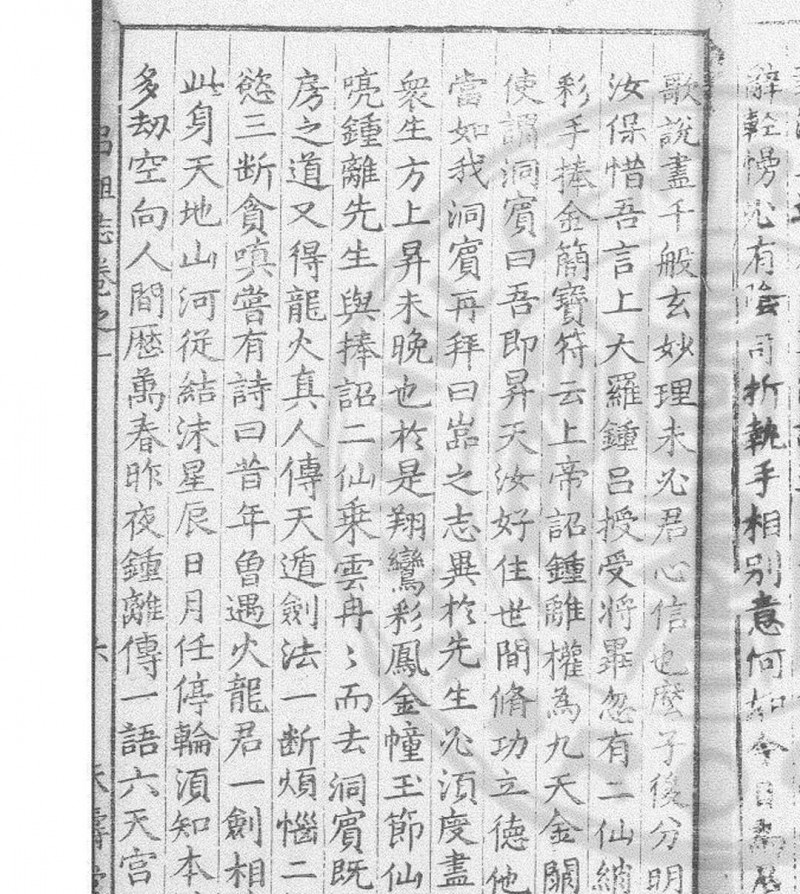 辭輕慢必有陰司折執手相別意何如今日爲
歌說盡千般玄妙理未必君心信也麼子後分明
汝保惜吾言上大羅鍾呂授受將畢忽有二仙綃
彩手捧金簡寶符云上帝詔鍾離權為九天金闕
使謂洞賓曰吾即昇天汝好住世間脩功立德他
當如我洞賓再拜曰嵓之志異於先生必須度盡
衆生方上昇未晚也於是翔鸞彩鳳金幢玉節仙
喨鍾離先生與捧詔二仙乗雲冉〻而去洞賓既
房之道又得龍火真人傳天遁劍法一断煩惱二
慾三断貪嗔嘗有詩曰昔年曾遇火龍君一劍相
此身天地山河従結沫星辰日月任停輪須知本
多劫空向人間歷萬春昨夜鍾離傳一語六天宮
呂祖志卷之一
六